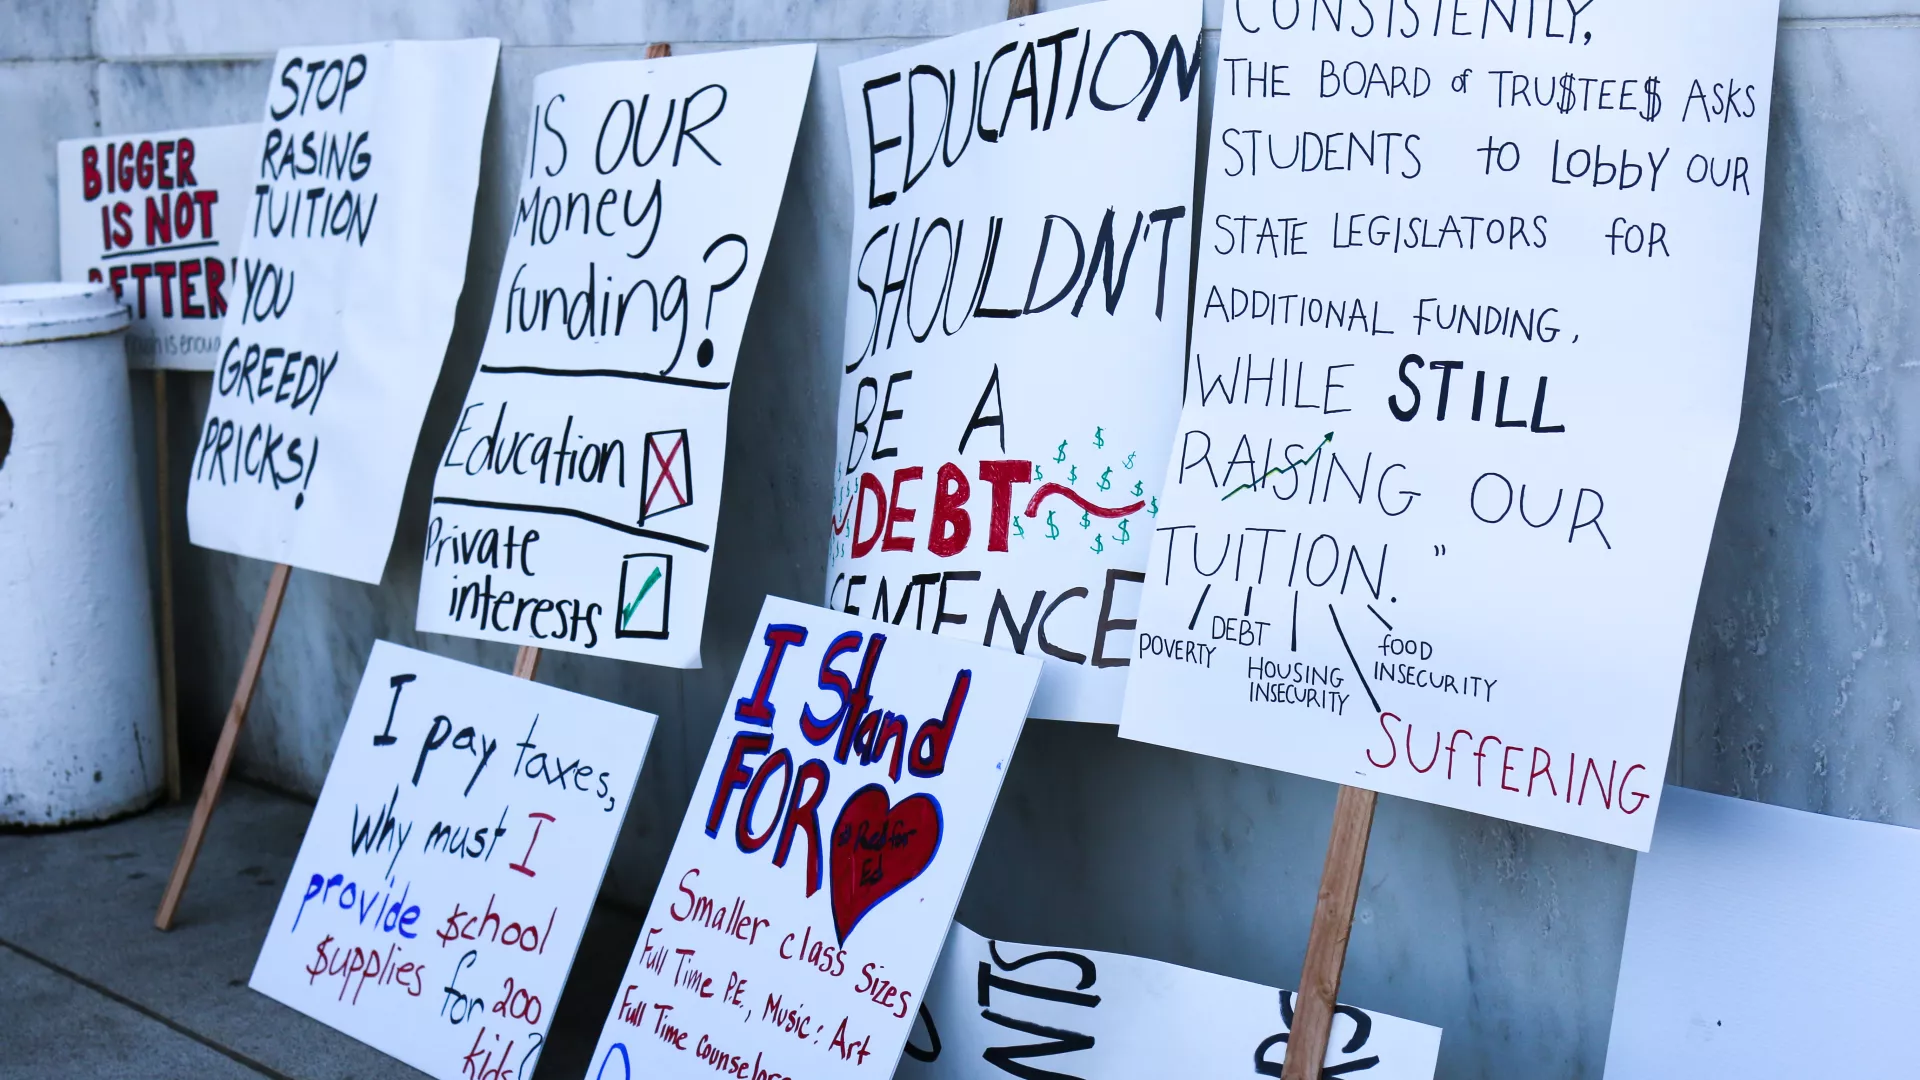 BIGGER
IS NOT
BETTER!
STOP
RASING
TUITION
YOU
GREEDY
PRICKS!
IS OUR
Money
funding?
Education
Private
interests
EDUCATION
SHOULDN'T
BE A
DEBT
SENTENCE
CONSISTENTLY,
THE BOARD of TRU$TEE$ ASKS
STUDENTS to LObbY OUR
STATE LEGISLATORS fOR
ADDITIONAL FUNDING,
WHILE STILL
RAISING OUR
TUITION."
POVERTY
DEBT
HOUSING
INSECURITY
fOOD
INSECURITY
SUffERING
I pay taxes,
Why must I
provide $chool
$upplies for 200
kids?
I Stand
FOR
Red for
Ed
Smaller class sizes
Full Time P.E., Music: Art
Full Time counselors
NTS